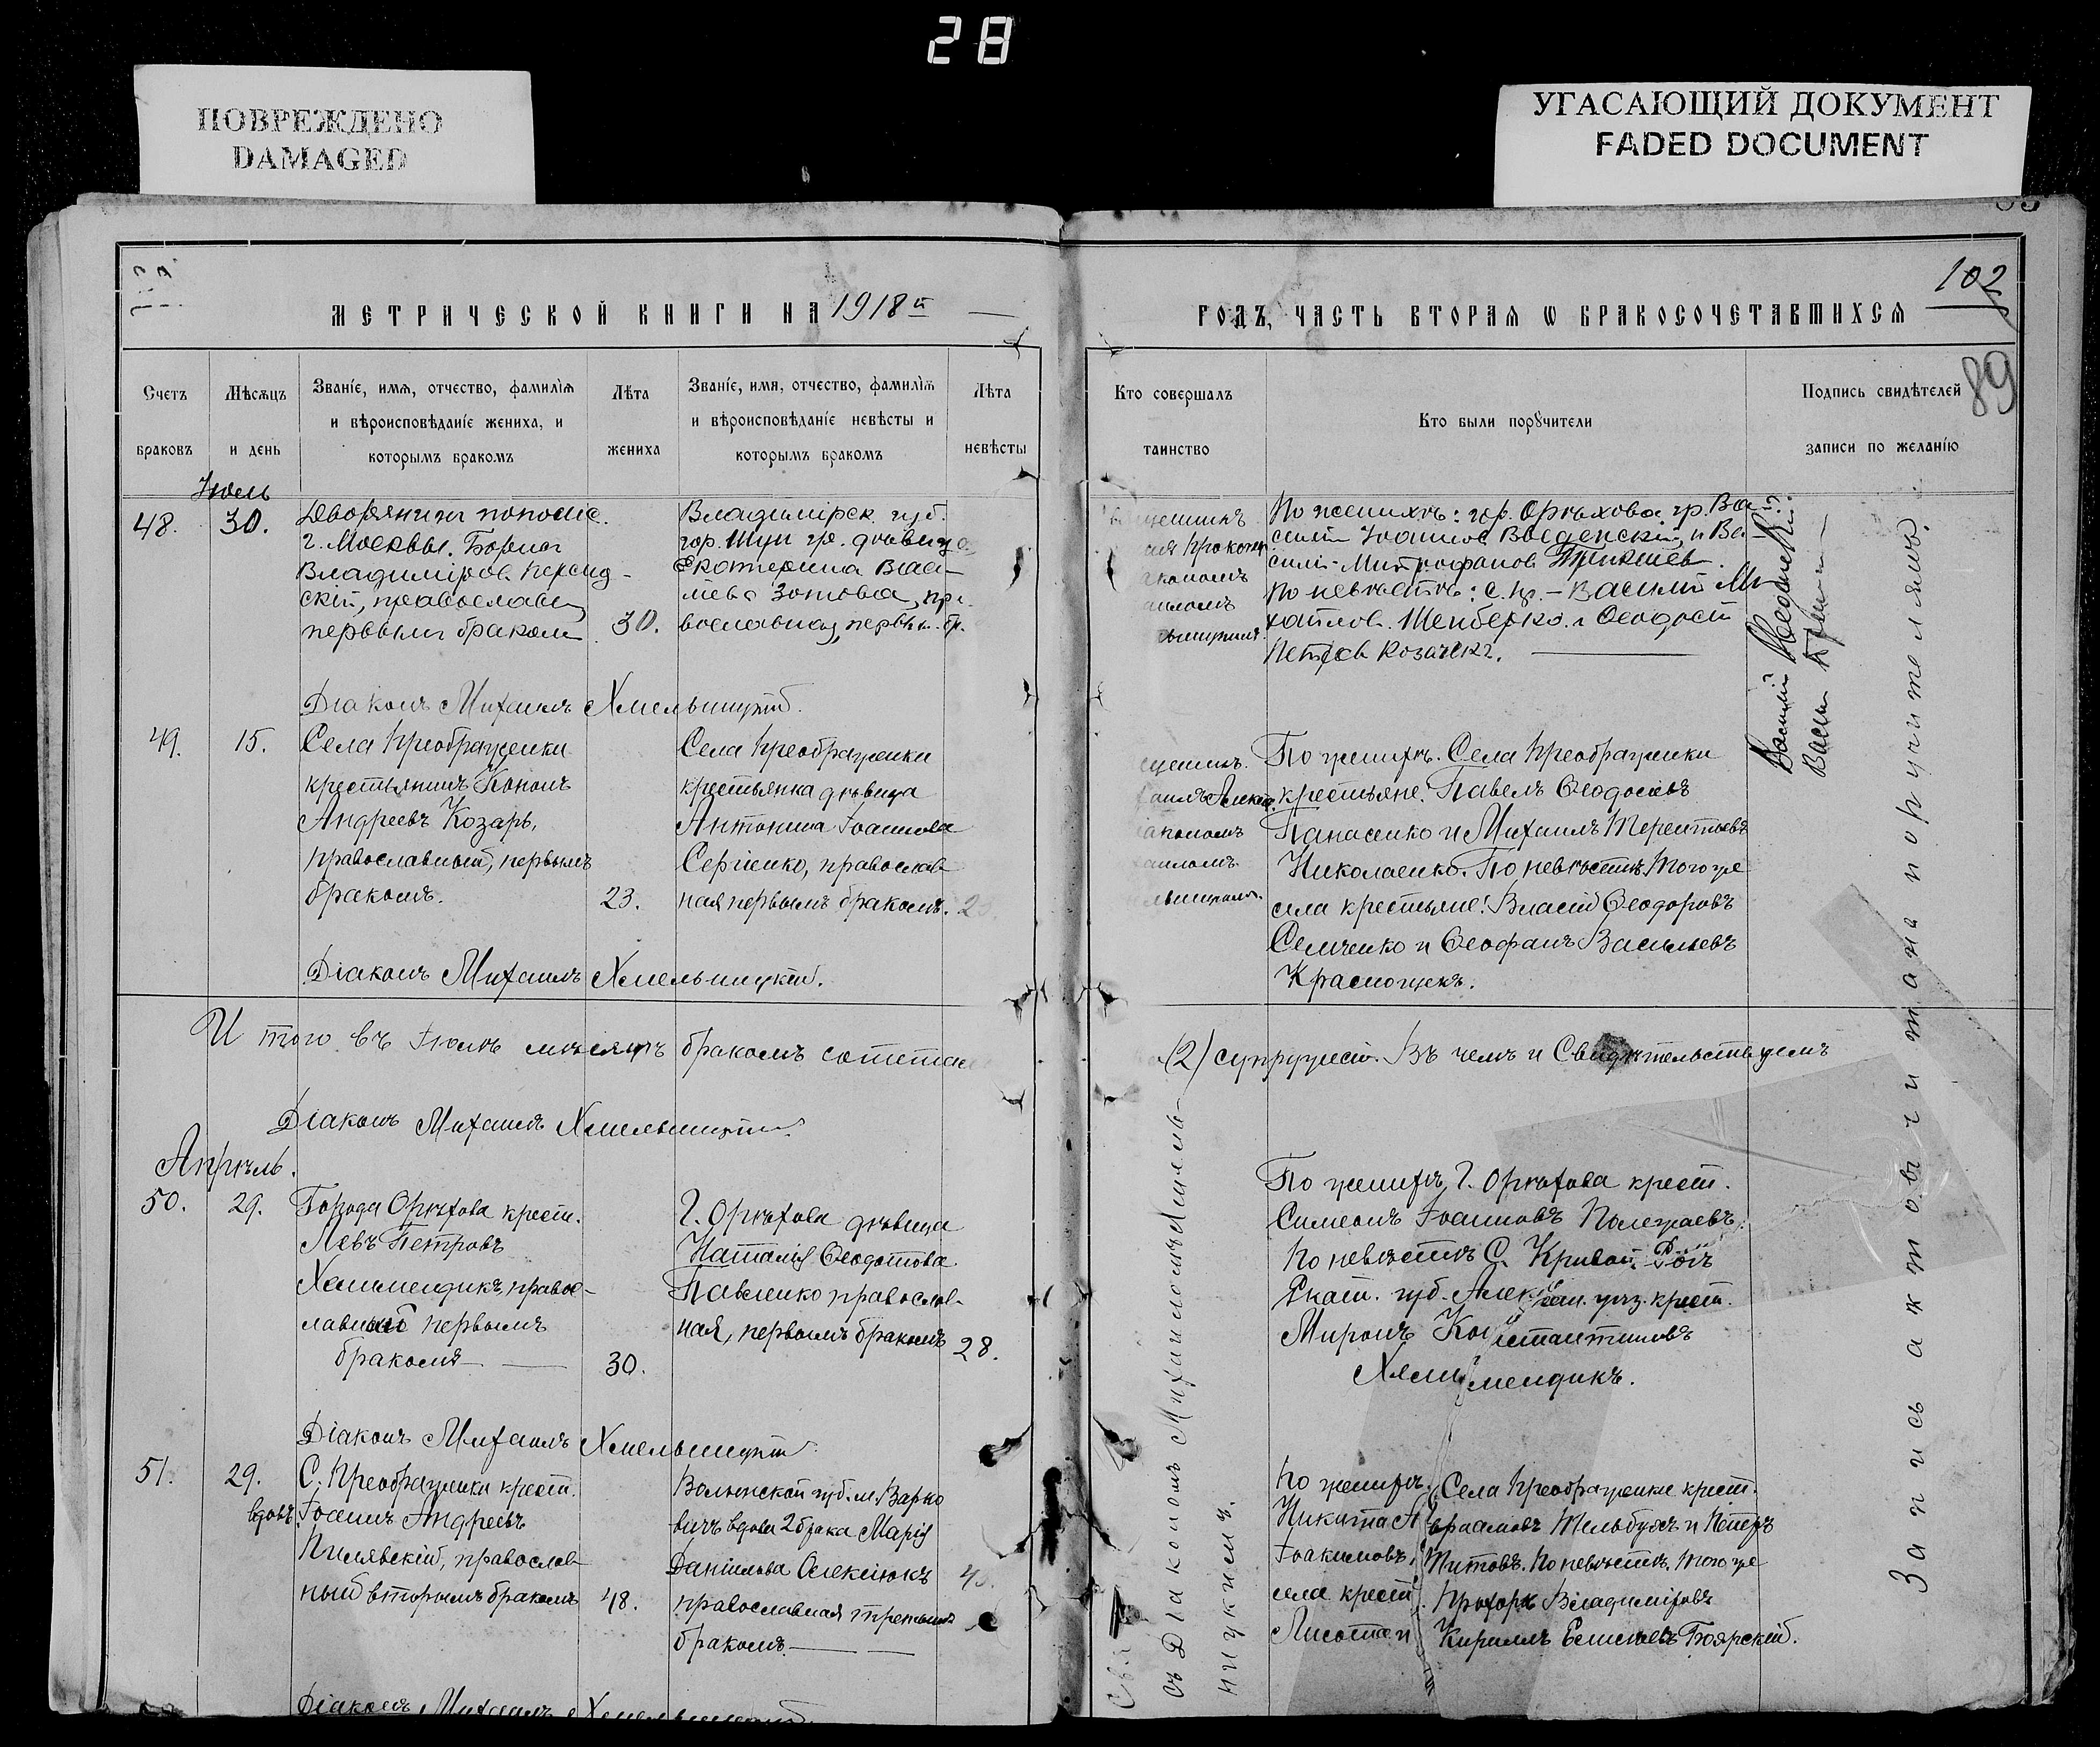 28
ПОВРЕЖДЕНО
DAMAGED
УГАСАЮЩИЙ ДОКУМЕНТ
FADED DOCUMENT
МЕТРИЧЕСКОЙ КНИГИ НА 1918й
Счетъ браковъ
Мѣсяцъ и день
Званіе, имя, отчество, фамилія
и вѣроисповѣданіе жениха, и
которымъ бракомъ
Лѣта жениха
Званіе, имя, отчество, фамилія
и вѣроисповѣданіе невѣсты и
которымъ бракомъ
Лѣта невѣсты
Іюль
48.
30.
Дворянинъ
г. Москвы. Борисъ
Владиміров. Персид-
скій, православн
первымъ бракомъ
30.
Владимірск. губ.
гор. Шуи гр. дѣвица
Екатерина Васи-
Зотова, пра-
вославная, первы. бр.
Діаконъ Михаилъ Хмельницкій.
49.
15.
Села Преображенки
крестьянинъ Кононъ
Андреевъ Козарь,
православный, первымъ
бракомъ.
23.
Села Преображенки
крестьянка дѣвица
Антонина Іоаннова
Сергіенко, православ-
ная первымъ бракомъ.
Діаконъ Михаилъ Хмельницкій.
И того въ Іюлѣ мѣсяцѣ бракомъ сочетан
Діаконъ Михаилъ Хмельницкій
Апрѣль.
50.
29.
Города Орѣхова крест.
Левъ Петровъ
Хальмендикъ, правос-
лавный первымъ
бракомъ
30.
Г. Орѣхова дѣвица
Наталія Ѳеодотова
Павленко православ-
ная, первымъ бракомъ
28.
Діаконъ Михаилъ Хмельницкій
51.
29.
С. Преображенки крест.
вдовъ. Іоаннъ Андреевъ
Пилявскій, православ-
ный вторымъ бракомъ
48.
Волынской губ. м. Варко
вичъ вдова 2 брака Марія
Даніилова Олексіюкъ
православная третьимъ
бракомъ.
Діаконъ Михаилъ Хмельницкій.
102
ГОДЪ, ЧАСТЬ ВТОРАЯ Ѡ БРАКОСОЧЕТАВШИХСЯ
89
Кто совершалъ
таинство
Кто были порꙋчители
Подпись свидѣтелей
записи по желанію
По женихѣ: гор. Орѣхова гр. Ва-
силій Іоаннов Введенскій, и Ва-
силій Митрофанов
По невѣстѣ: Василій Ми
хайлов. Шенберко. и Ѳеодосій
Петров Козачекъ.
Василій Введенскій
По женихѣ. Села Преображенки
крестьяне. Павелъ Ѳеодосіевъ
Панасенко и Михаилъ Терентьевъ
Николаенко. По невѣстѣ. Того же
села крестьяне: Власій Ѳеодоровъ
Семченко и Ѳеофанъ Васильевъ
Краснощекъ.
(2) супружест. Въ чемъ и Свидѣтельствуемъ
По женихѣ, Г. Орѣхова крест.
Симеонъ Іоанновъ Полежаевъ,
По невѣстѣ С. Кривой Рогъ
Екат. губ. Алексан. уѣз. крест.
Миронъ Константиновъ
Хальмендикъ.
По женихѣ. Села Преображенки крест.
Никита Авраамовъ Жельбухъ и Петръ
Іоакимовъ, Титовъ. По невѣстѣ. Того же
села крест. Прохоръ Владиміровъ
Лисота и Кириллъ Боярскій.
съ Діакономъ Михаиломъ Хмель-
ницкимъ.
Запись актовъ читана поручителямъ.